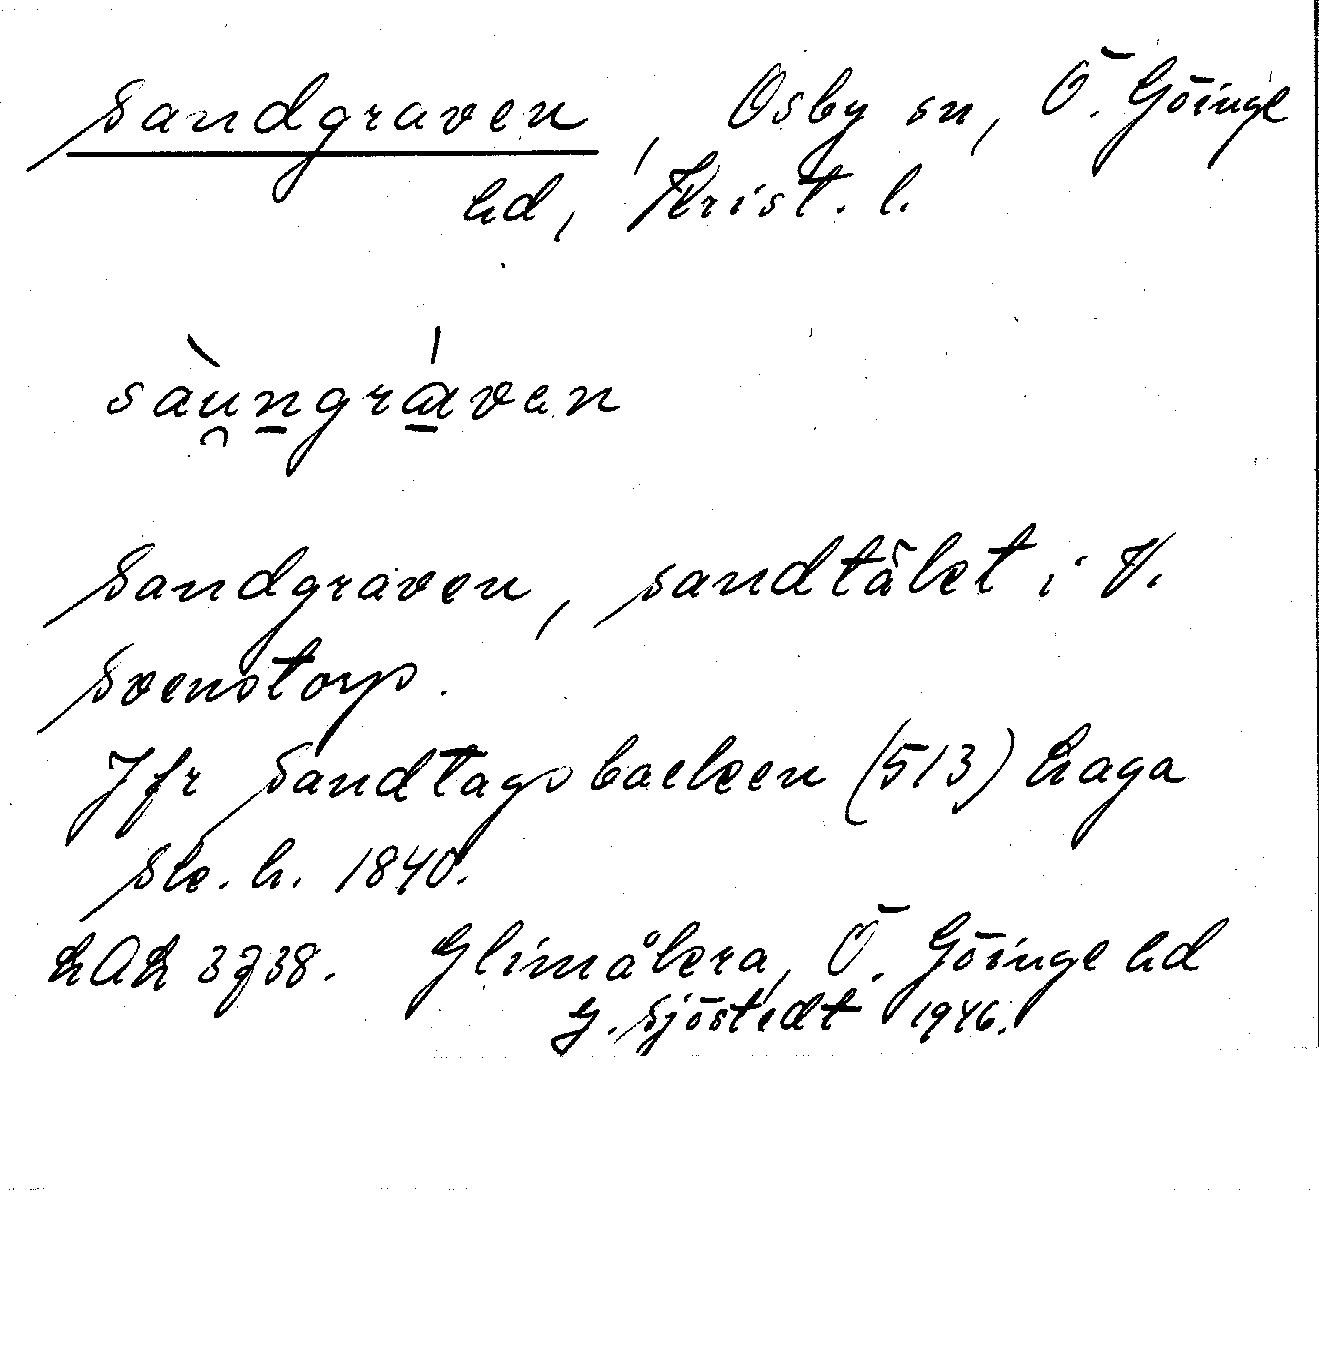 Sandgraven, Osby sn, Ö. Göinge
hd, Krist. l.
sàu̯ngráven
Sandgraven, sandtäket i V.
Svenstorp.
Jfr Sandtagsbacken (513) Haga
Sk. h. 1840.
Glimåkra, Ö. Göinge hd
G. Sjöstedt 1946.